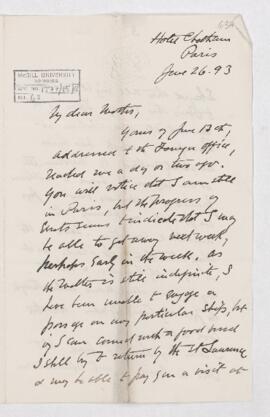 Hotel Chatham
Paris
June 26. 93
My dear Mother,
Yours of June 13th,
addressed to the Foreign office,
reached me a day or two ago.
You will notice that I am still
in Paris, but the progress of
events seems to indicate that I may
be able to get away next week,
perhaps early in the week. As
the matter is still indefinite, I
have been unable to engage a
passage on any particular ship, but
if I can connect with a good vessel
I shall try to return by the St Lawrence
& may be able to pay you a visit at